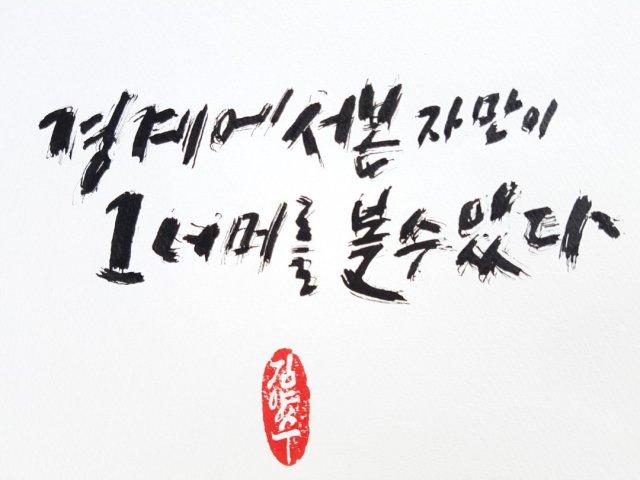 경계에 서본 자만이
그 너머를 볼 수 있다
김양수